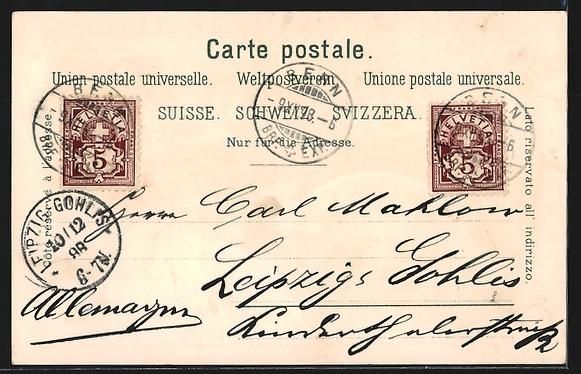 Carte postale.
Union postale universelle. Weltpostverein. Unione postale universale.
SUISSE. SCHWEIZ. SVIZZERA.
Nur für die Adresse.
Côté réservé à l'adresse.
Lato riservato all' indirizzo.
BERN
BERN
-9.XII.98.-6
BRF. EXP.
BERN
HELVETIA
5
HELVETIA
5
LEIPZIG-GOHLIS
20/12
98
6-7N.
Herrn Carl Mahlow
Leipzig-Gohlis
Allemagne